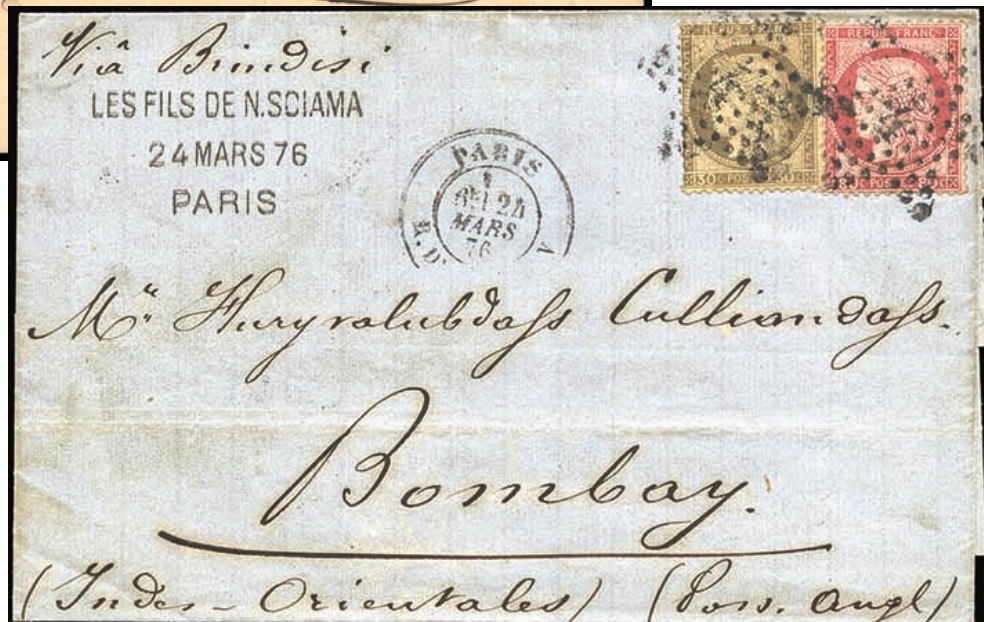 Viâ Brindisi
LES FILS DE N.SCIAMA
24 MARS 76
PARIS
PARIS
24
MARS
76
REPUB FRANC
30 C POSTES 30
REPUB FRANC
80 C POSTES 80
Mr Hurryvalubdass Culliandass.
Bombay.
(Indes-Orientales) (Poss. Angl)